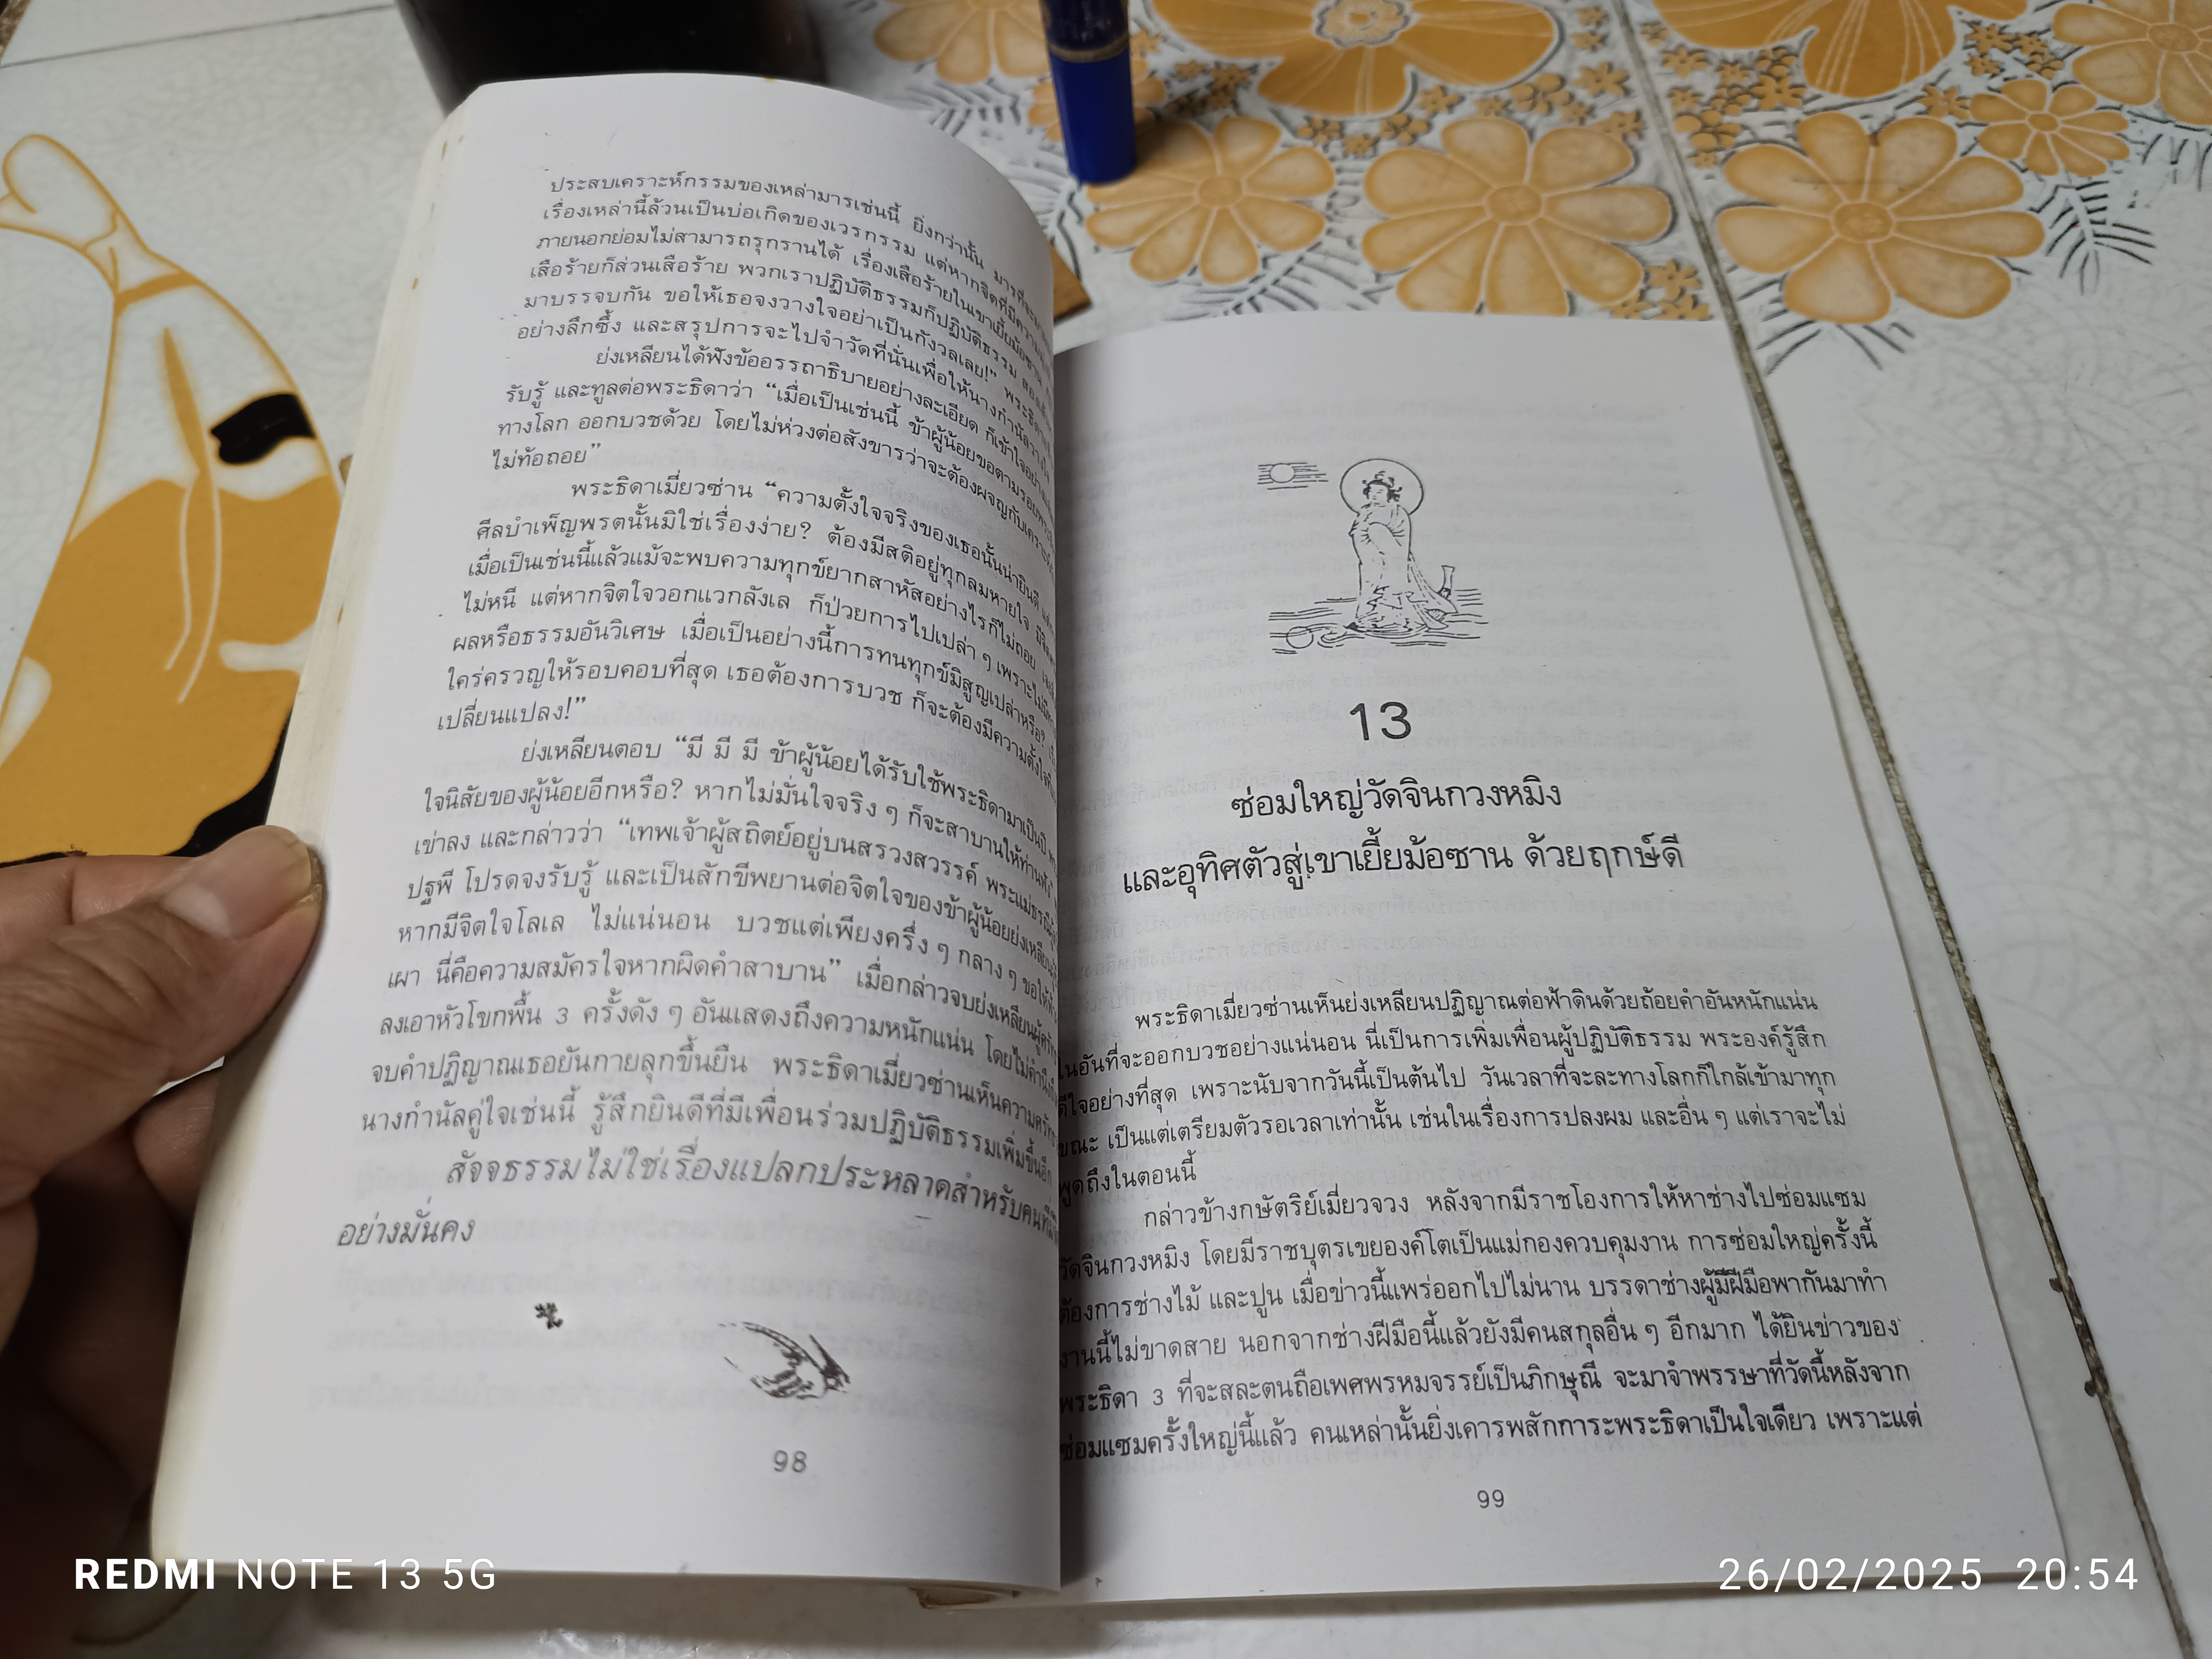 ประสบเคราะห์กรรมของเหล่ามารเช่นนี้ ยิ่งกว่านั้น มารที่จะ
เรื่องเหล่านี้ล้วนเป็นบ่อเกิดของเวรกรรม แต่หากจิตที่มีความ
ภายนอกย่อมไม่สามารถรุกรานได้ เรื่องเสือร้ายในเขาเยี้ยม้อซาน
เสือร้ายก็ส่วนเสือร้าย พวกเราปฏิบัติธรรมก็ปฏิบัติธรรม
มาบรรจบกัน ขอให้เธอจงวางใจอย่าเป็นกังวลเลย!” พระธิดา
อย่างลึกซึ้ง และสรุปการจะไปจำวัดที่นั่นเพื่อให้นางกำนัลวางใจ
ย่งเหลียนได้ฟังข้ออรรถาธิบายอย่างละเอียด ก็เข้าใจอย่าง
รับรู้ และทูลต่อพระธิดาว่า “เมื่อเป็นเช่นนี้ ข้าผู้น้อยขอตามรอย
ทางโลก ออกบวชด้วย โดยไม่ห่วงต่อสังขารว่าจะต้องผจญกับเคราะห์
ไม่ท้อถอย”
พระธิดาเมี่ยวซ่าน “ความตั้งใจจริงของเธอนั้นน่ายินดี
ศีลบำเพ็ญพรตนั้นมิใช่เรื่องง่าย? ต้องมีสติอยู่ทุกลมหายใจ
เมื่อเป็นเช่นนี้แล้วแม้จะพบความทุกข์ยากสาหัสอย่างไรก็ไม่ถอย
ไม่หนี แต่หากจิตใจวอกแวกลังเล ก็ป่วยการไปเปล่า ๆ เพราะไม่มี
ผลหรือธรรมอันวิเศษ เมื่อเป็นอย่างนี้การทนทุกข์มิสูญเปล่าหรือ?
ใคร่ครวญให้รอบคอบที่สุด เธอต้องการบวช ก็จะต้องมีความตั้งใจ
เปลี่ยนแปลง!”
ย่งเหลียนตอบ “มี มี มี ข้าผู้น้อยได้รับใช้พระธิดามาเป็นปี
ใจนิสัยของผู้น้อยอีกหรือ? หากไม่มั่นใจจริง ๆ ก็จะสาบานให้ท่านฟัง”
เข่าลง และกล่าวว่า “เทพเจ้าผู้สถิตย์อยู่บนสรวงสวรรค์ พระแม่ธรณี
ปฐพี โปรดจงรับรู้ และเป็นสักขีพยานต่อจิตใจของข้าผู้น้อยย่งเหลียน
หากมีจิตใจโลเล ไม่แน่นอน บวชแต่เพียงครึ่ง ๆ กลาง ๆ ขอให้
เผา นี่คือความสมัครใจหากผิดคำสาบาน” เมื่อกล่าวจบย่งเหลียน
ลงเอาหัวโขกพื้น 3 ครั้งดัง ๆ อันแสดงถึงความหนักแน่น โดยไม่คำนึง
จบคำปฏิญาณเธอยันกายลุกขึ้นยืน พระธิดาเมี่ยวซ่านเห็นความ
นางกำนัลคู่ใจเช่นนี้ รู้สึกยินดีที่มีเพื่อนร่วมปฏิบัติธรรมเพิ่มขึ้นอีก
สัจจธรรมไม่ใช่เรื่องแปลกประหลาดสำหรับคนที่
อย่างมั่นคง
98
13
ซ่อมใหญ่วัดจินกวงหมิง
และอุทิศตัวสู่เขาเยี้ยม้อซาน ด้วยฤกษ์ดี
พระธิดาเมี่ยวซ่านเห็นย่งเหลียนปฏิญาณต่อฟ้าดินด้วยถ้อยคำอันหนักแน่น
ในอันที่จะออกบวชอย่างแน่นอน นี่เป็นการเพิ่มเพื่อนผู้ปฏิบัติธรรม พระองค์รู้สึก
ดีใจอย่างที่สุด เพราะนับจากวันนี้เป็นต้นไป วันเวลาที่จะละทางโลกก็ใกล้เข้ามาทุก
ขณะ เป็นแต่เตรียมตัวรอเวลาเท่านั้น เช่นในเรื่องการปลงผม และอื่น ๆ แต่เราจะไม่
พูดถึงในตอนนี้
กล่าวข้างกษัตริย์เมี่ยวจวง หลังจากมีราชโองการให้หาช่างไปซ่อมแซม
วัดจินกวงหมิง โดยมีราชบุตรเขยองค์โตเป็นแม่กองควบคุมงาน การซ่อมใหญ่ครั้งนี้
ต้องการช่างไม้ และปูน เมื่อข่าวนี้แพร่ออกไปไม่นาน บรรดาช่างผู้มีฝีมือพากันมาทำ
งานนี้ไม่ขาดสาย นอกจากช่างฝีมือนี้แล้วยังมีคนสกุลอื่น ๆ อีกมาก ได้ยินข่าวของ
พระธิดา 3 ที่จะสละตนถือเพศพรหมจรรย์เป็นภิกษุณี จะมาจำพรรษาที่วัดนี้หลังจาก
ซ่อมแซมครั้งใหญ่นี้แล้ว คนเหล่านั้นยิ่งเคารพสักการะพระธิดาเป็นใจเดียว เพราะแต่
99
REDMI NOTE 13 5G
26/02/2025 20:54